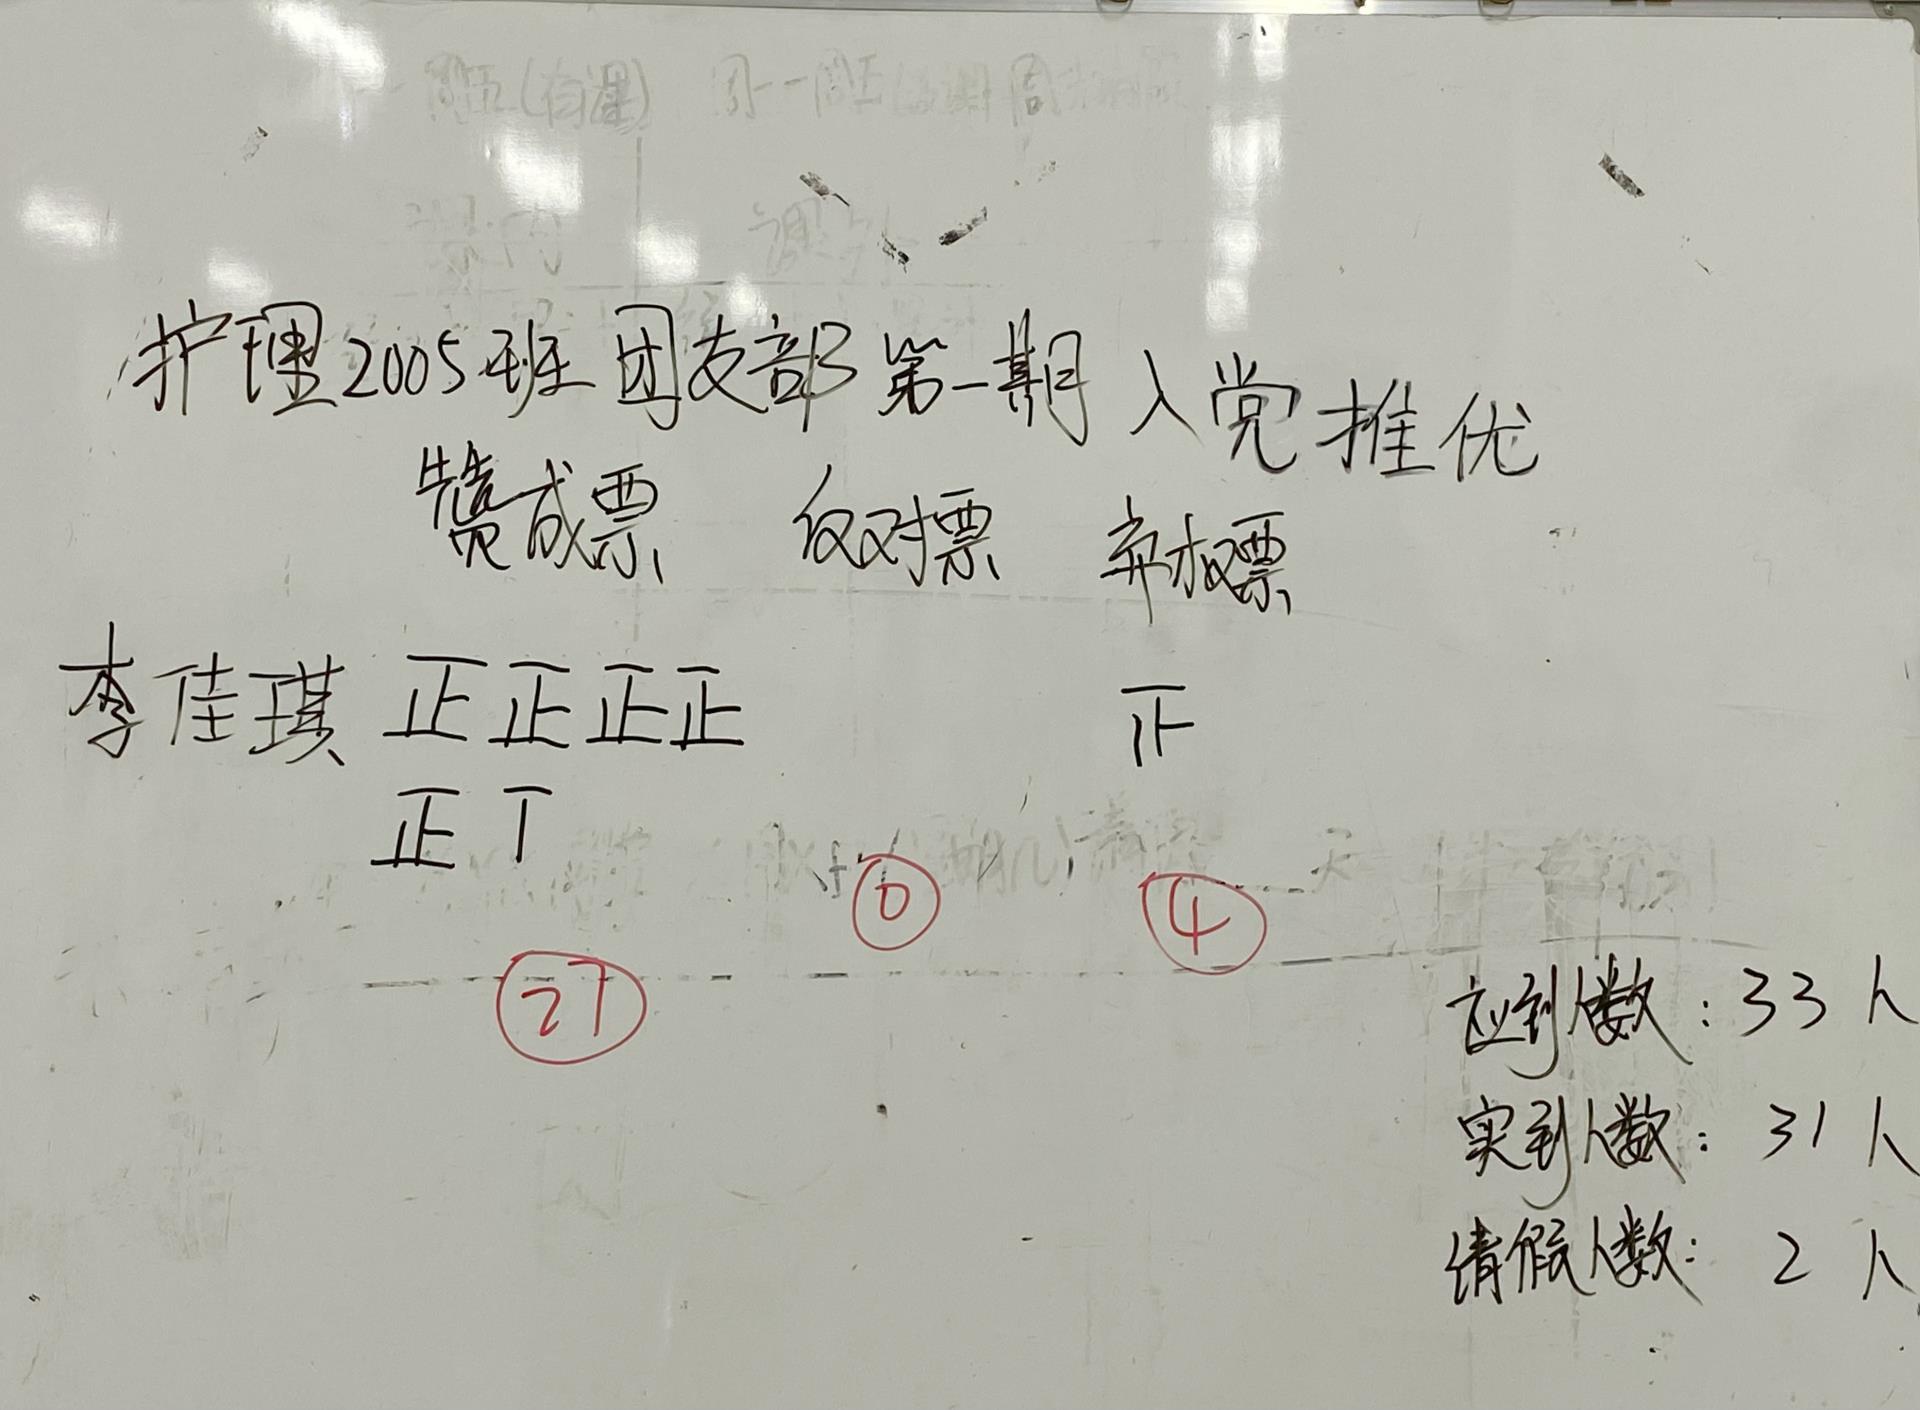 护理2005班团支部第一期入党推优
赞成票 反对票 弃权票
李佳琪 正正正正
正丅
0
4
27
应到人数：33人
实到人数：31人
请假人数：2人